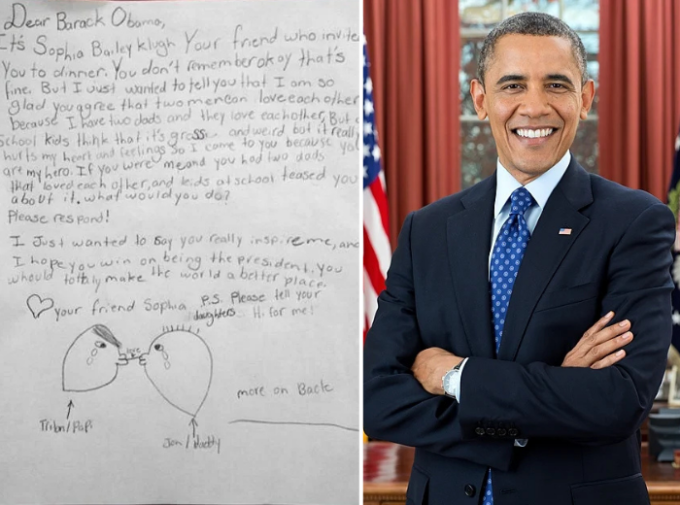 Dear Barack Obama,
It's Sophia Bailey klugh Your friend who invite
You to dinner. You don't remember okay that's
fine. But I Just wanted to tell you that I am so
glad you agree that two men can love each other
because I have two dads and they love each other, But
School kids think that it's gross and weird bot it really
hurts my heart and feelings. So I come to you because you
are my hero. If you were me and you had two dads
that loved each other, and kids at school teased you
about it, what would you do?
Please respond!
I Just wanted to say you really inspire me, and
I hope you win on being the president. You
whould totally make the world a better place.
your friend Sophia
P.S. Please tell your
daughters Hi for me!
love
more on Back
Jon / Daddy